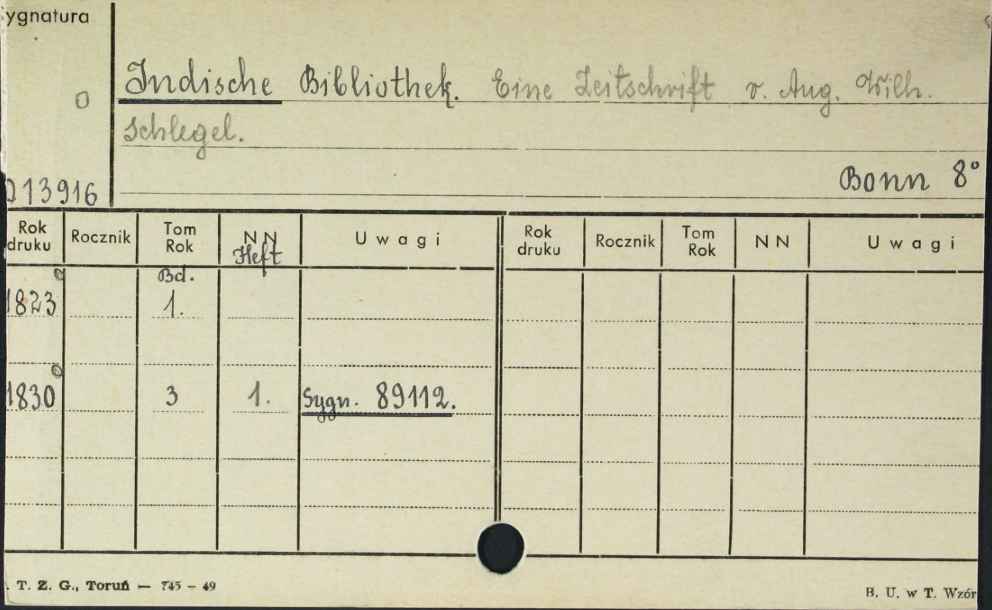 ygnatura
Indische Bibliothek. Eine Zeitschrift v. Aug. Wilh.
0
Schlegel.
Bonn 8°
013916
Rok druku Rocznik Tom Rok NN Heft Uwagi Rok druku Rocznik Tom Rok NN Uwagi
Bd.
1823 1.
1830 3 1. Sygn. 89112.
. T. Z. G., Toruń — 745 – 49
B. U. w T. Wzór